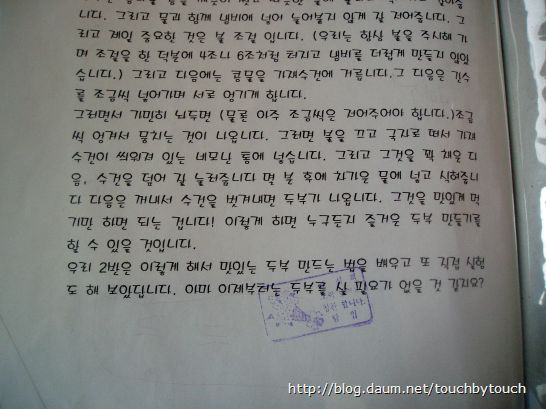 니다. 그리고 물과 함께 냄비에 넣어 눌어붙지 않게 잘 저어줍니다. 그
리고 제일 중요한 것은 불 조절 입니다. (우리는 항상 불을 주시해 가
며 조절을 한 덕분에 4조나 6조처럼 쳐지고 냄비를 더럽게 만들지 않았
습니다.) 그리고 다음에는 콩물을 가제수건에 거릅니다.그 다음은 간수
를 조금씩 넣어가며 서로 엉기게 합니다.
그러면서 가만히 놔두면 (물론 아주 조금씩은 저어주어야 합니다.)조금
씩 엉겨서 뭉치는 것이 나옵니다. 그러면 불을 끄고 국자로 떠서 가제
수건이 씌워져 있는 네모난 통에 넣습니다. 그리고 그것을 꽉 채운 다
음, 수건을 덮어 잘 눌러줍니다 몇 분 후에 차가운 물에 넣고 식혀줍니
다 다음은 꺼내서 수건을 벗겨내면 두부가 나옵니다. 그것을 맛있게 먹
기만 하면 되는 겁니다! 이렇게 하면 누구든지 즐거운 두부 만들기를
할 수 있을 것입니다.
우리 2반은 이렇게 해서 맛있는 두부 만드는 법을 배우고 또 직접 실험
도 해 보았답니다. 아마 이제부터는 두부를 살 필요가 없을 것 같지요?
참 잘 했습니다.
http://blog.daum.net/touchbytouch